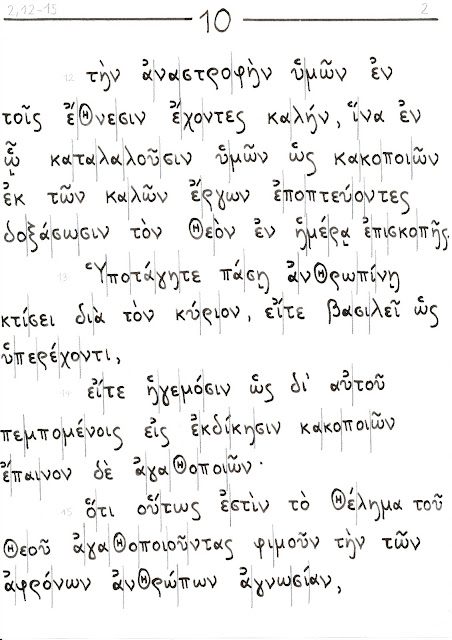 2,12-15 10 2
12 τὴν ἀναστροφὴν ὑμῶν ἐν
τοῖς ἔθνεσιν ἔχοντες καλήν, ἵνα ἐν
ᾧ καταλαλοῦσιν ὑμῶν ὡς κακοποιῶν
ἐκ τῶν καλῶν ἔργων ἐποπτεύοντες
δοξάσωσιν τὸν Θεὸν ἐν ἡμέρᾳ ἐπισκοπῆς.
13 Ὑποτάγητε πάσῃ ἀνθρωπίνῃ
κτίσει διὰ τὸν κύριον, εἴτε βασιλεῖ ὡς
ὑπερέχοντι,
14 εἴτε ἡγεμόσιν ὡς δι' αὐτοῦ
πεμπομένοις εἰς ἐκδίκησιν κακοποιῶν
ἔπαινον δὲ ἀγαθοποιῶν·
15 ὅτι οὕτως ἐστὶν τὸ θέλημα τοῦ
Θεοῦ ἀγαθοποιοῦντας φιμοῦν τὴν τῶν
ἀφρόνων ἀνθρώπων ἀγνωσίαν,